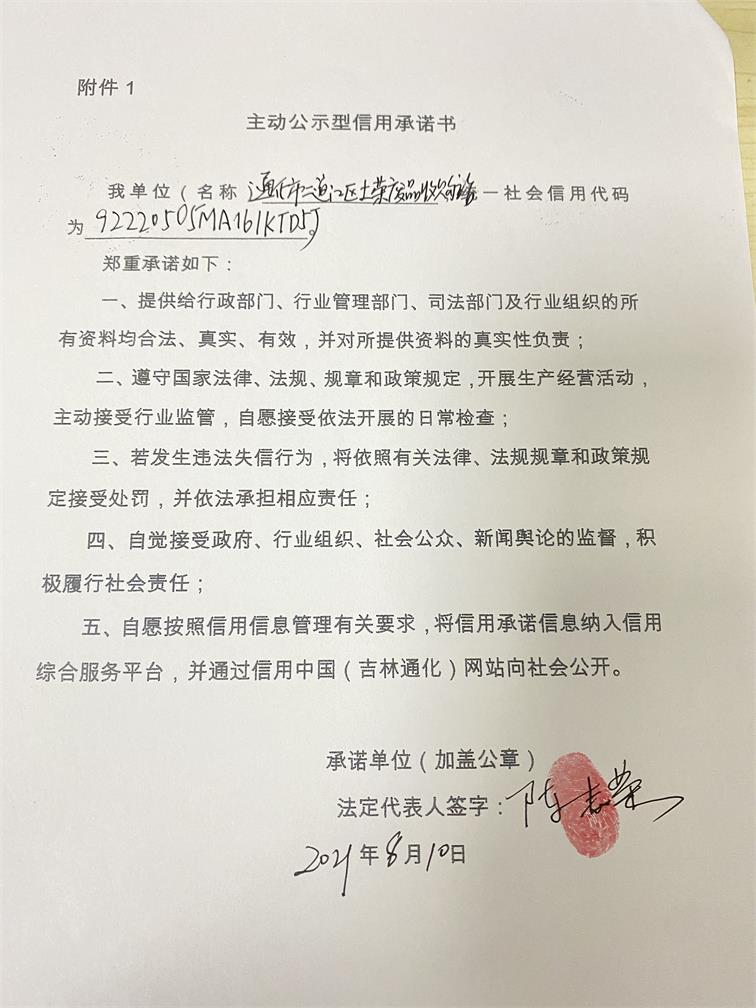 附件 1
主动公示型信用承诺书
我单位（名称 通化市二道江区土荣废品收购站 一社会信用代码
为 92220505MA161KTD5J。
郑重承诺如下：
一、提供给行政部门、行业管理部门、司法部门及行业组织的所
有资料均合法、真实、有效，并对所提供资料的真实性负责；
二、遵守国家法律、法规、规章和政策规定，开展生产经营活动，
主动接受行业监管，自愿接受依法开展的日常检查；
三、若发生违法失信行为，将依照有关法律、法规规章和政策规
定接受处罚，并依法承担相应责任；
四、自觉接受政府、行业组织、社会公众、新闻舆论的监督，积
极履行社会责任；
五、自愿按照信用信息管理有关要求，将信用承诺信息纳入信用
综合服务平台，并通过信用中国（吉林通化）网站向社会公开。
承诺单位（加盖公章）
法定代表人签字：陈志荣
2021 年 8 月 10 日